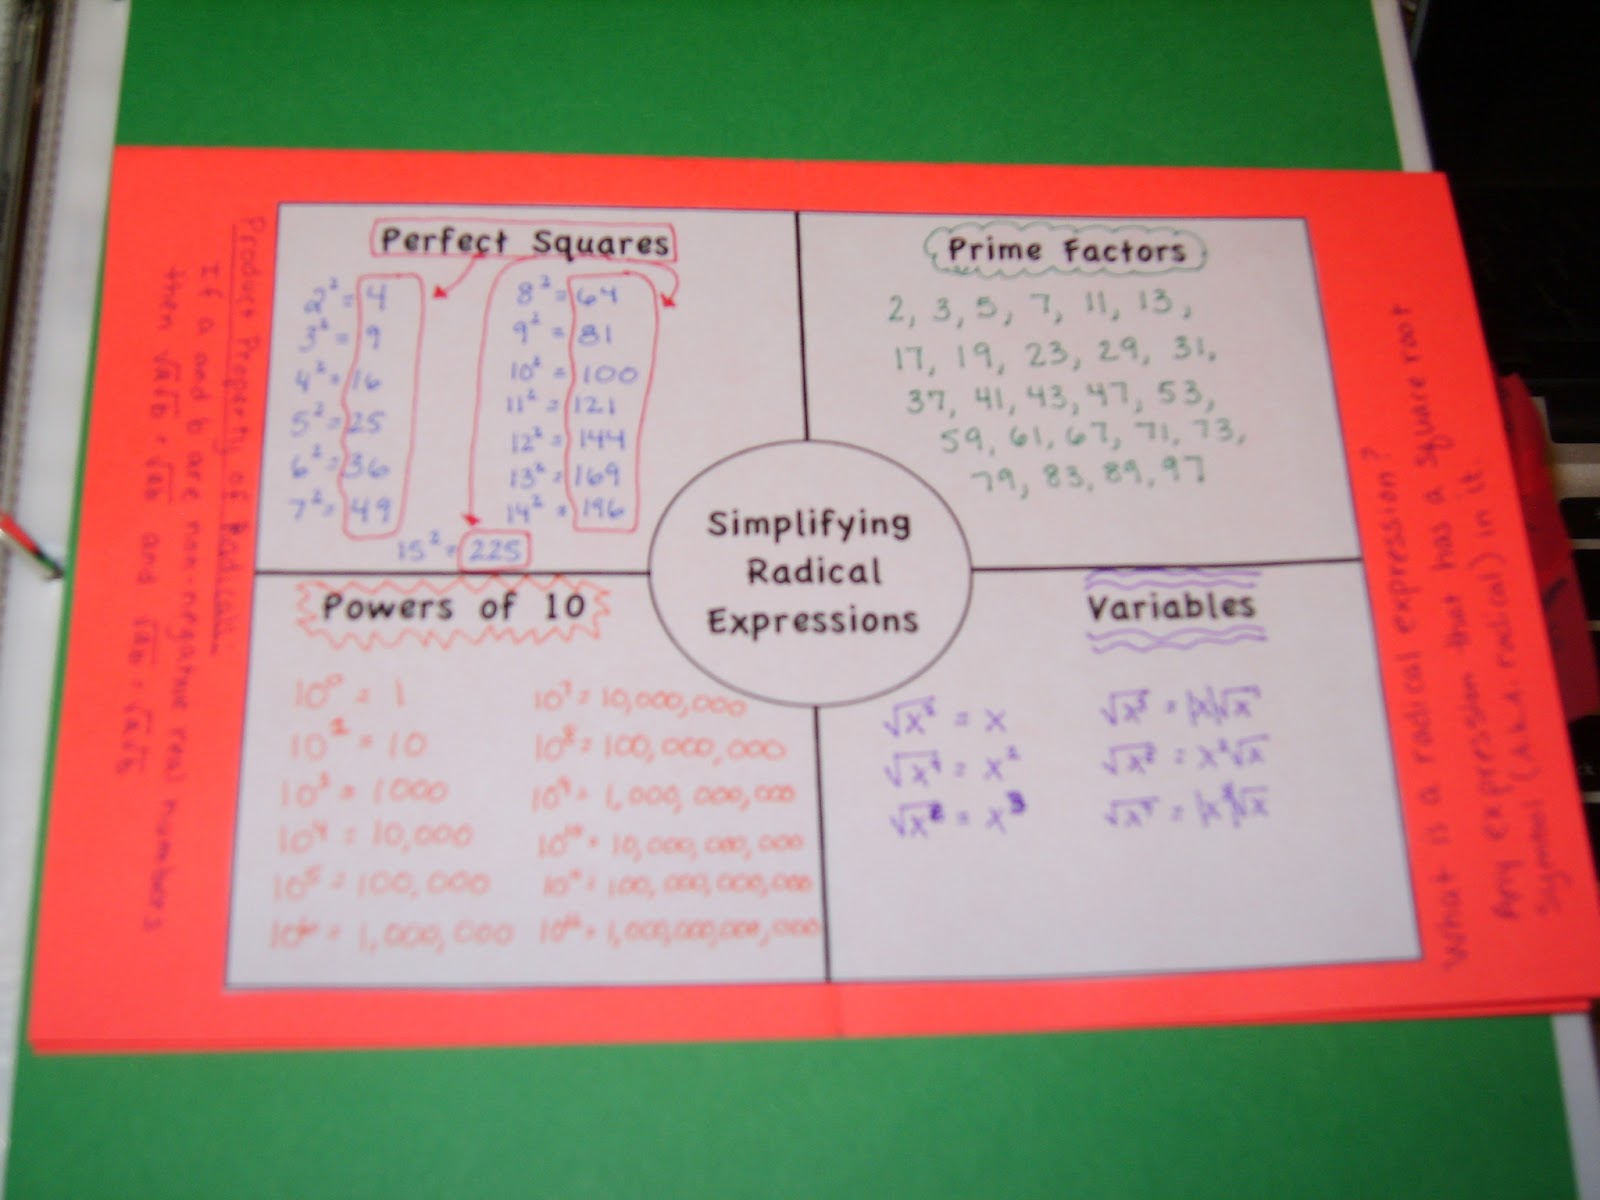 Product Property of Radicals
If a and b are non-negative real numbers
then √a√b = √ab and √ab = √a√b
Perfect Squares
2² = 4
3² = 9
4² = 16
5² = 25
6² = 36
7² = 49
8² = 64
9² = 81
10² = 100
11² = 121
12² = 144
13² = 169
14² = 196
15² = 225
Prime Factors
2, 3, 5, 7, 11, 13,
17, 19, 23, 29, 31,
37, 41, 43, 47, 53,
59, 61, 67, 71, 73,
79, 83, 89, 97
Simplifying
Radical
Expressions
Powers of 10
10⁰ = 1
= 10
10³ = 1000
10⁴ = 10,000
10⁵ = 100,000
10⁶ = 1,000,000
10⁷ = 10,000,000
10⁸ = 100,000,000
10⁹ = 1,000,000,000
10¹⁰ = 10,000,000,000
= 100,000,000,000
10¹² = 1,000,000,000,000
Variables
= x
√x⁴ = x²
= x³
√x³ = |x|√x
= x²√x
= √x
What is a radical expression?
Any expression that has a square root
symbol (a.k.a. radical) in it.